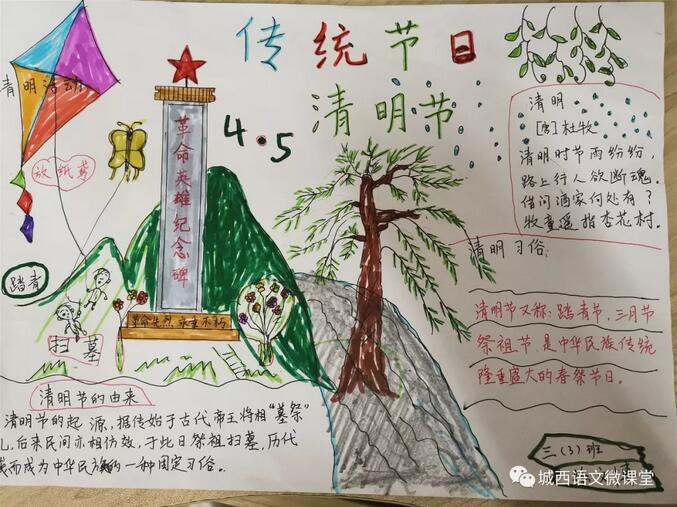 传统节日
清明节
4.5
清明活动
放纸鸢
踏青
扫墓
革命英雄纪念碑
革命先烈 永垂不朽
清明
杜牧
清明时节雨纷纷，
路上行人欲断魂。
借问酒家何处有？
牧童遥指杏花村。
清明习俗：
清明节又称：踏青节，三月节
祭祖节，是中华民族传统
隆重盛大的春祭节日。
清明节的由来
清明节的起源，据传始于古代帝王将相"墓祭"
礼，后来民间亦相仿效，于此日祭祖扫墓，历代
而成为中华民族的一种固定习俗。
三（3）班
城西语文微课堂